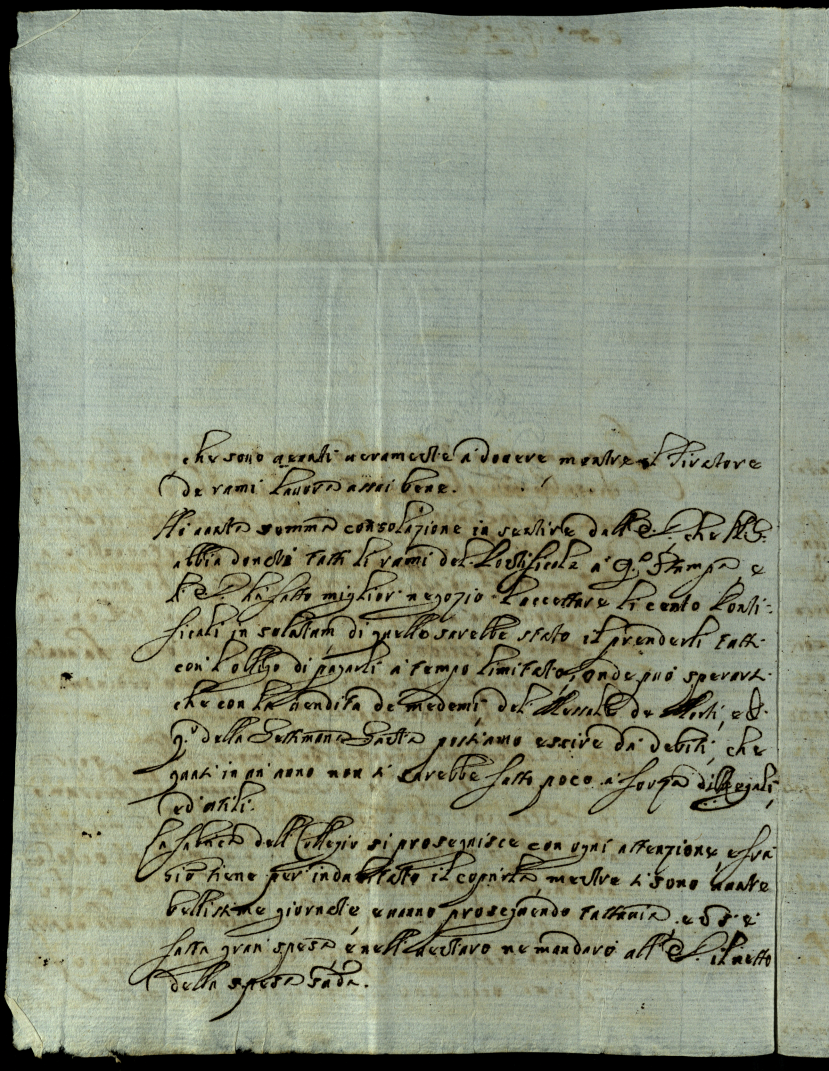 che sono avanti veramente à dovere mentre il Tiratore
de rami lavora assai bene.
Hò avuta somma consolazione in sentire dall' che
abbia donati tutti li rami del Pontificale à q.ª Stampa e
hà fatto miglior negozio l'accettare li cento Ponti-
ficali in di quello sarebbe stato il prenderli tutti
con l'obligo di pagarli à tempo limitato, onde può sperarsi
che con la vendita de medemi del Messale de Morti, e d.
q.º della Settimana Santa possiamo escire dà debiti, che
quasi in un anno non si sarebbe fatto poco à forza di Regali
ed utili.
La fabrica dell Collegio si proseguisce con ogni attenzione e frà
tiene per indubitato il coprirla, mentre si sono avute
bellissime giornate e vanno proseguendo tuttavia. e si è
fatta gran spesa è nell' venturo ne mandarò all' il netto
della spesa fatta.